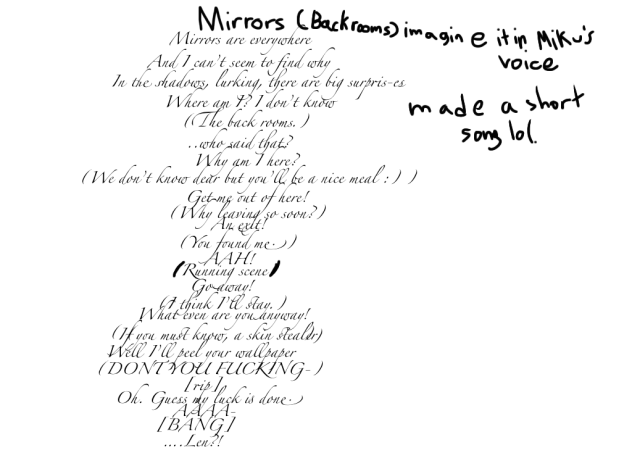 Mirrors (Backrooms) imagine it in Miku's
voice
made a short
song lol.
Mirrors are everywhere
And I can't seem to find why
In the shadows, lurking, there are big surpris-es
Where am I? I don't know
(The back rooms.)
..who said that?
Why am I here?
(We don't know dear but you'll be a nice meal :) )
Get me out of here!
(Why leaving so soon?)
An exit!
(You found me.)
AAH!
(Running scene)
Go away!
(I think I'll stay.)
What even are you anyway!
(If you must know, a skin stealer)
Well I'll peel your wallpaper
(DONT YOU FUCKING-)
[rip]
Oh. Guess my luck is done.
AAAA-
[BANG]
....Len?!